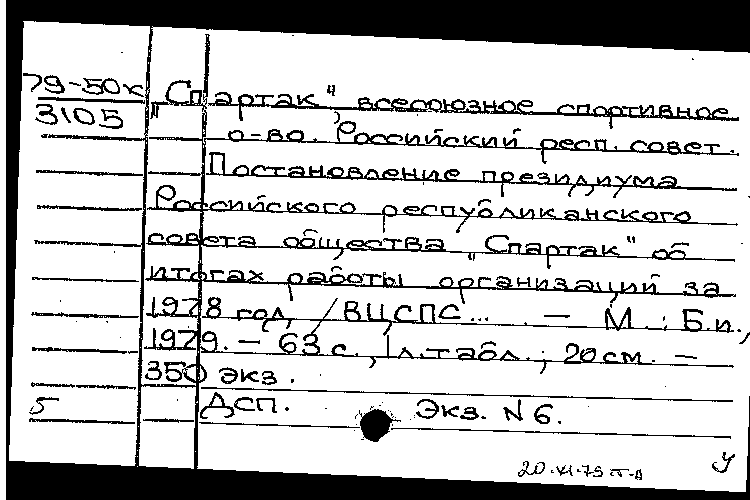 79-50к
3105
„Спартак", всесоюзное спортивное
о-во. Российский респ. совет.
Постановление президиума
Российского республиканского
совета общества „Спартак" об
итогах работы организаций за
1978 год / ВЦСПС... — М.: Б.и.,
1979. — 63 с., 1 л. табл.; 20 см. —
350 экз.
5 ДСП. Экз. N 6.
20.VI.79 п-д
У